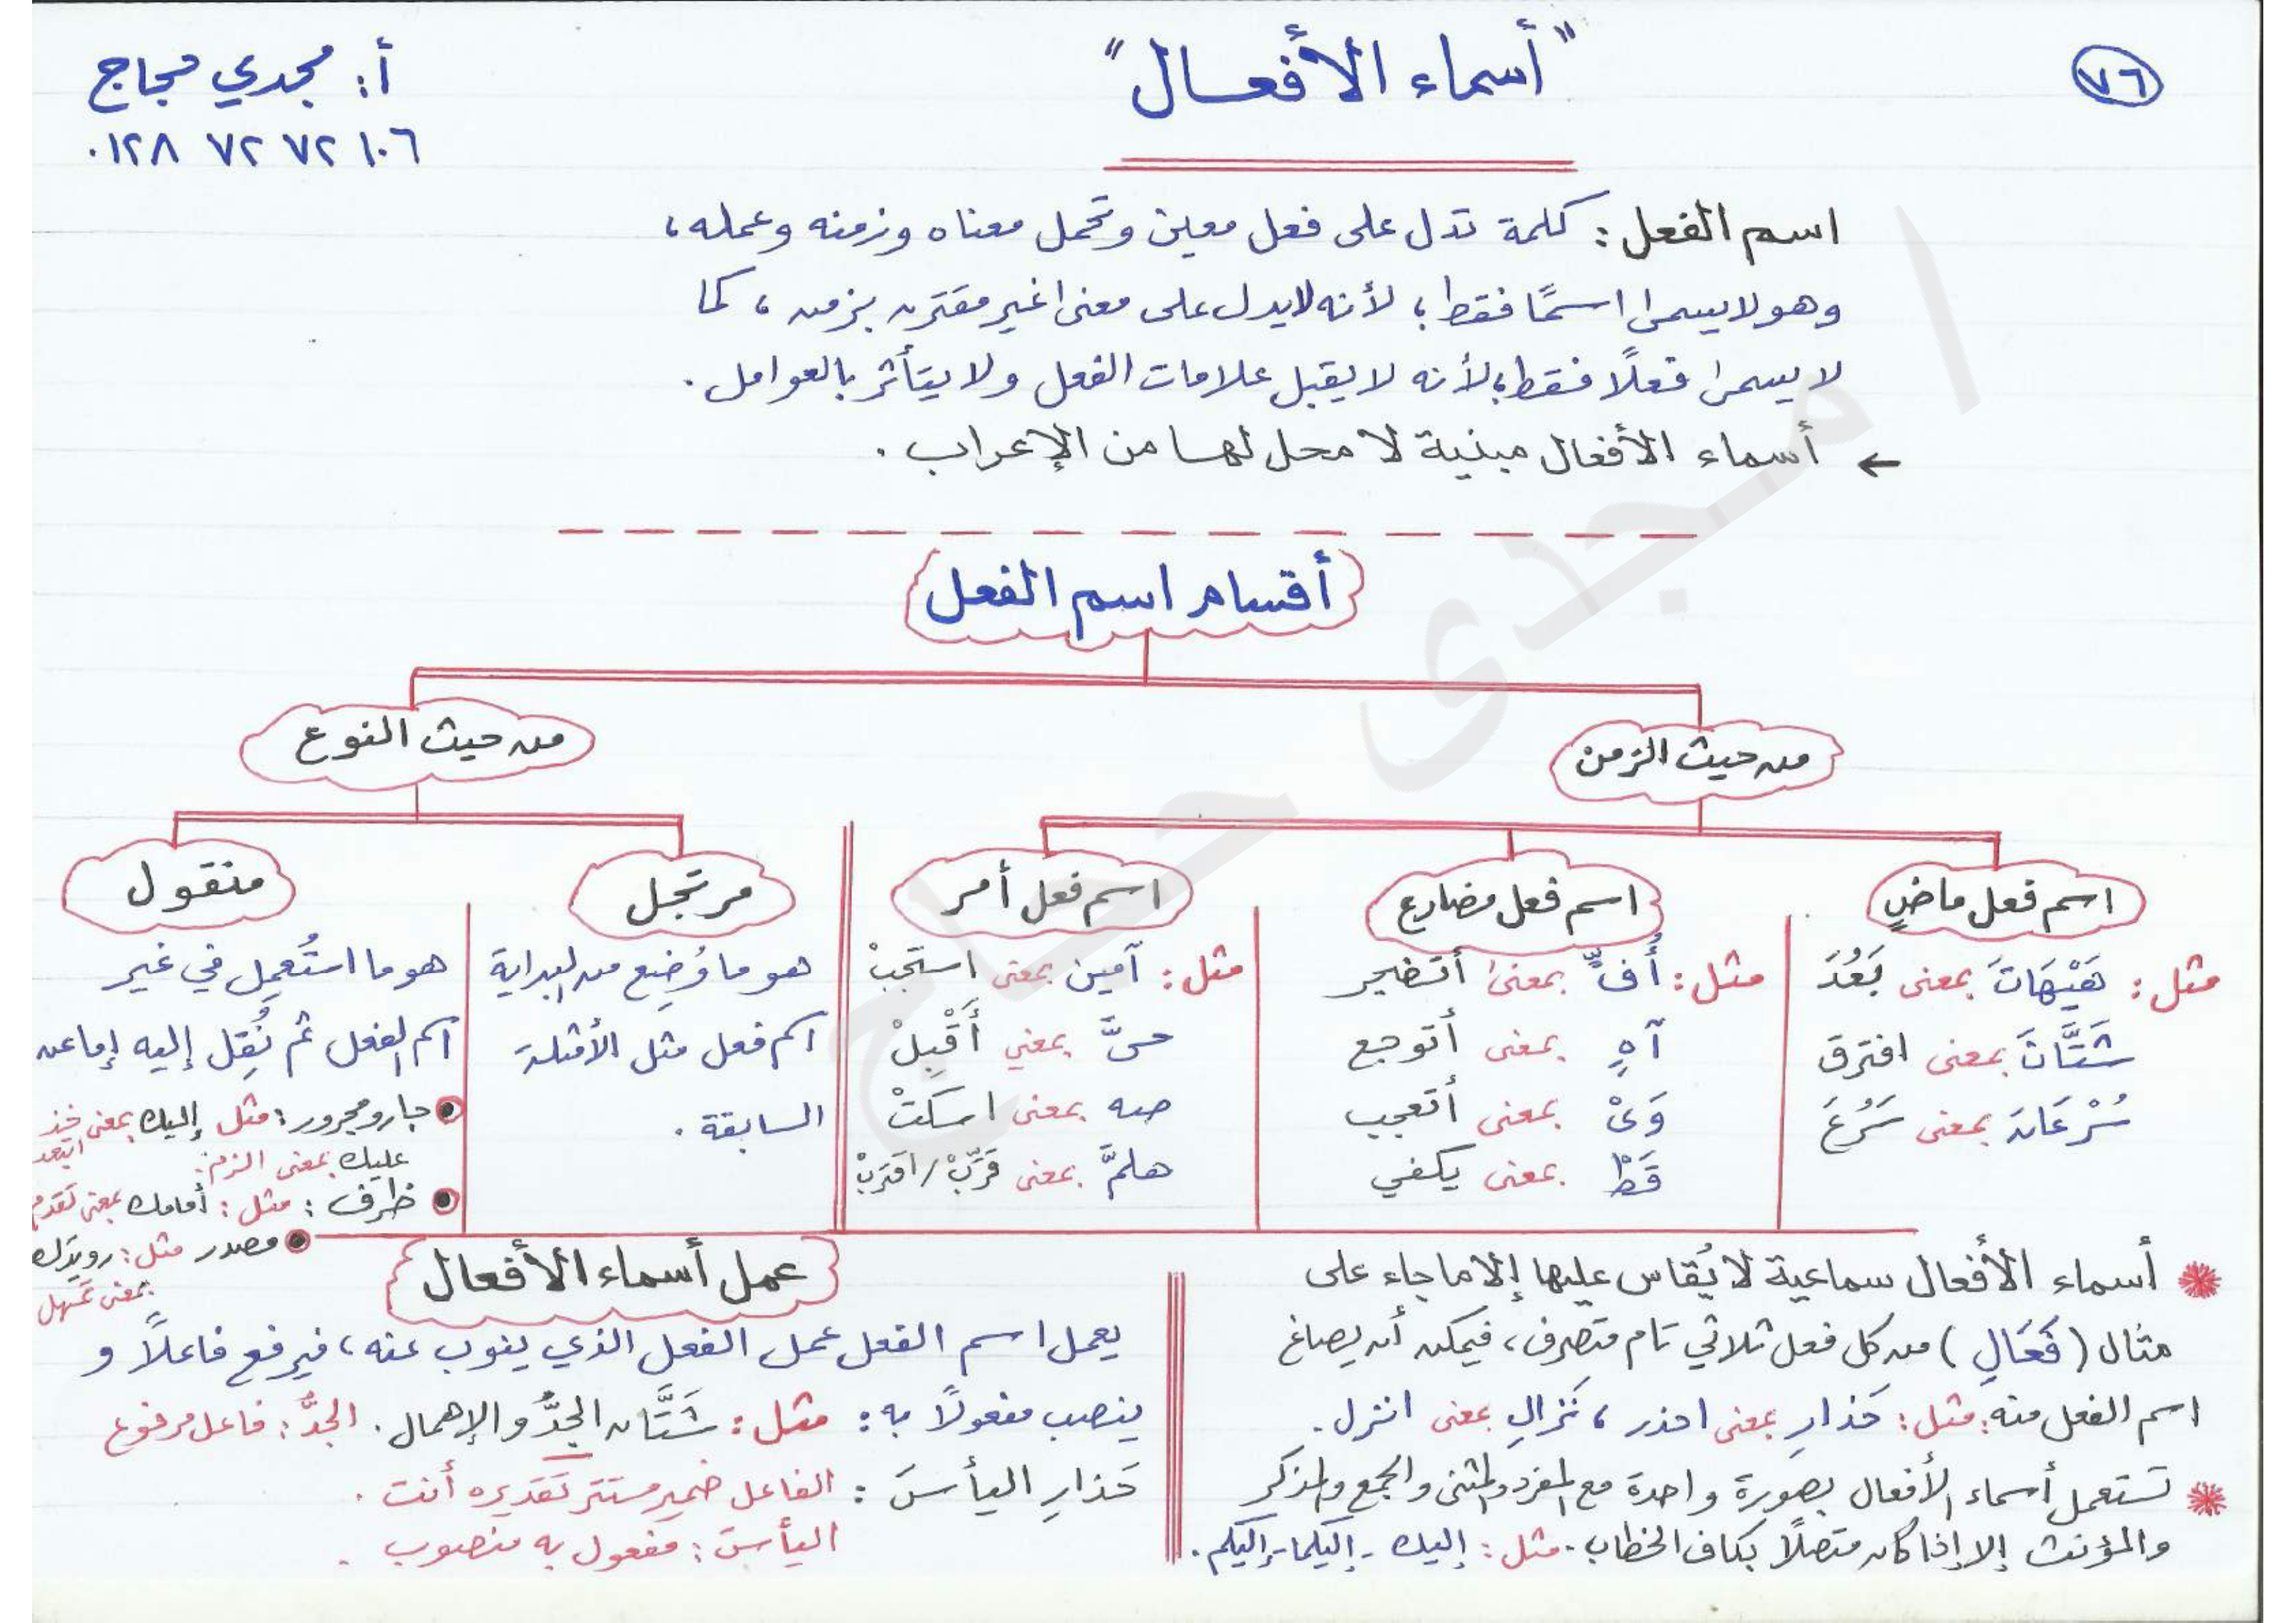 ٧٦
"أسماء الأفعال"
أ: مجدي حجاج
٠١٢٨ ٧٢ ٧٢ ١٠٦
اسم الفعل: كلمة تدل على فعل معين وتحمل معناه وزمنه وعمله،
وهو لا يسمى اسمًا فقط؛ لأنه لا يدل على معنى غير مقترن بزمن، كما
لا يسمى فعلًا فقط؛ لأنه لا يقبل علامات الفعل ولا يتأثر بالعوامل.
← أسماء الأفعال مبنية لا محل لها من الإعراب.
أقسام اسم الفعل
من حيث الزمن
من حيث النوع
اسم فعل ماضٍ
مثل: هَيْهَاتَ بمعنى بَعُدَ
شَتَّانَ بمعنى افترق
سُرْعَانَ بمعنى سَرُعَ
اسم فعل مضارع
مثل: أُفٍّ بمعنى أتضجر
آهٍ بمعنى أتوجع
وَيْ بمعنى أتعجب
قَطْ بمعنى يكفي
اسم فعل أمر
مثل: آمين بمعنى استجبْ
حىَّ بمعنى أَقْبِلْ
صه بمعنى اسكتْ
هلمَّ بمعنى قَرِّبْ/اقتربْ
مرتجل
هو ما وُضِع من البداية
اسم فعل مثل الأمثلة
السابقة.
منقول
هو ما استُعمِل في غير
اسم الفعل ثم نُقِل إليه إما عن
جار ومجرور: مثل إليك بمعنى خذ
ابتعد
عليك بمعنى الزم.
ظرف: مثل: أمامك بمعنى تقدم
مصدر مثل: رويدك
بمعنى تمهل
أسماء الأفعال سماعية لا يُقاس عليها إلا ما جاء على
مثال (فَعَالِ) من كل فعل ثلاثي تام متصرف، فيمكن أن يصاغ
اسم الفعل منه: مثل: حَذارِ بمعنى احذر، نَزالِ بمعنى انزل.
تستعمل أسماء الأفعال بصورة واحدة مع المفرد والمثنى والجمع والمذكر
والمؤنث إلا إذا كان متصلًا بكاف الخطاب. مثل: إليك - إليكما - إليكم.
عمل أسماء الأفعال
يعمل اسم الفعل عمل الفعل الذي ينوب عنه، فيرفع فاعلًا و
ينصب مفعولًا به: مثل: شَتَّان الجدُّ والإهمال. الجدُّ: فاعل مرفوع
حَذارِ اليأسَ: الفاعل ضمير مستتر تقديره أنت.
اليأسَ: مفعول به منصوب.
ا مجدى حجاج